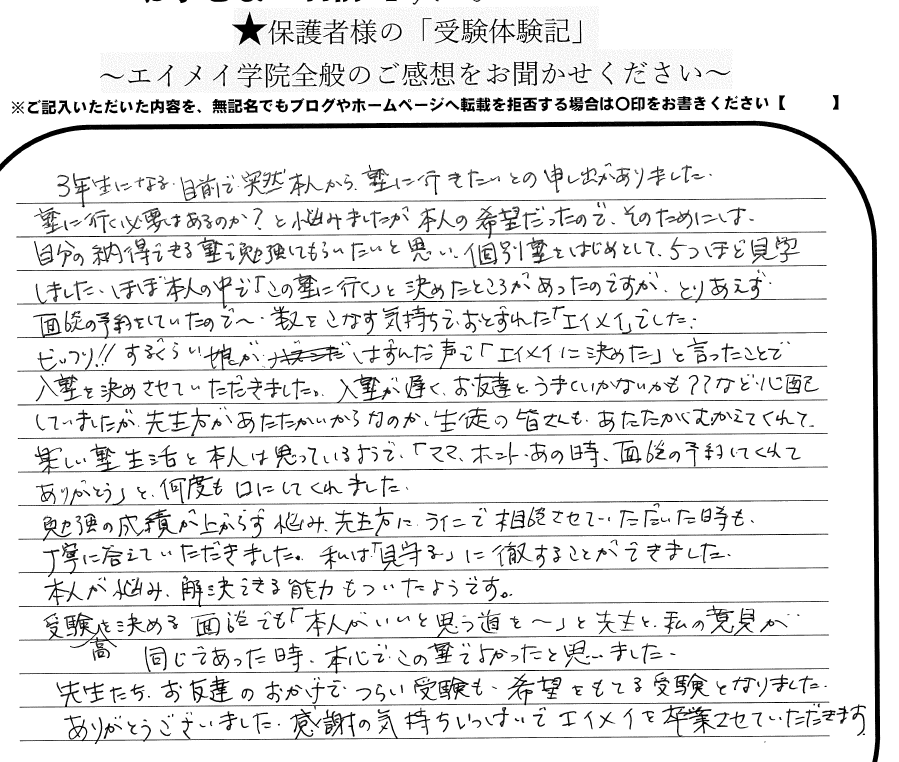 ★保護者様の「受験体験記」
～エイメイ学院全般のご感想をお聞かせください～
※ご記入いただいた内容を、無記名でもブログやホームページへ転載を拒否する場合は〇印をお書きください【　　】
3年生になる目前で突然本人から、塾に行きたいとの申し出がありました。
塾に行く必要はあるのか？と悩みましたが本人の希望だったので、そのためには、
自分の納得できる塾で勉強してもらいたいと思い、個別塾をはじめとして、5つほど見学
しました。ほぼ本人の中で「この塾に行く」と決めたところがあったのですが、とりあえず
面談の予約をしていたので～・数をこなす気持ちでおとずれた「エイメイ」でした。
ビックリ!!するぐらい娘が、はずんだ声で「エイメイに決めた」と言ったことで
入塾を決めさせていただきました。入塾が遅く、お友達とうまくいかないかも??など心配
していましたが、先生方があたたかいからなのか、生徒の皆さんも、あたたかくむかえてくれて、
楽しい塾生活と本人は思っているようで、「ママ、ホント、あの時、面談の予約してくれて
ありがとう」と、何度も口にしてくれました。
勉強の成績が上がらず悩み、先生方にラインで相談させていただいた時も、
丁寧に答えていただきました。私は「見守る」に徹することができました。
本人が悩み、解決できる能力もついたようです。
受験高を決める面談でも「本人がいいと思う道を～」と先生と、私の意見が
同じであった時、本心でこの塾でよかったと思いました。
先生たち、お友達のおかげでつらい受験も、希望をもてる受験となりました。
ありがとうございました。感謝の気持ちいっぱいでエイメイを卒業させていただきます。